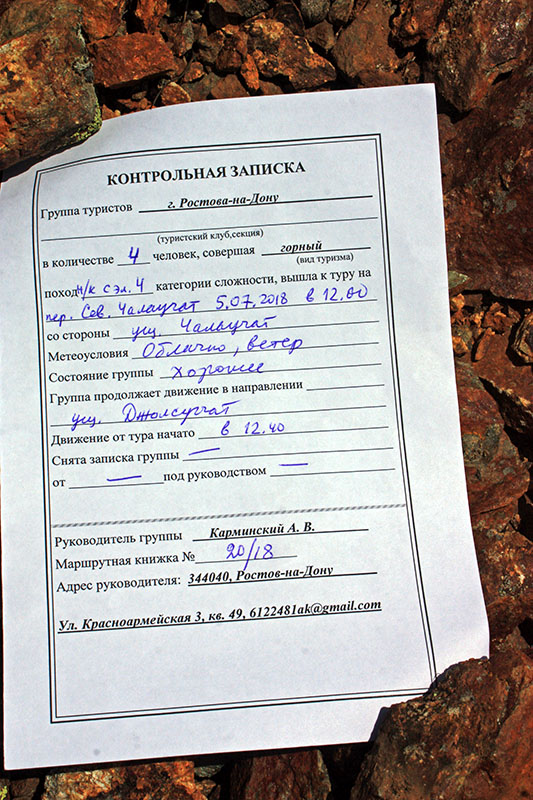 КОНТРОЛЬНАЯ ЗАПИСКА
Группа туристов г. Ростова-на-Дону
(туристский клуб,секция)
в количестве 4 человек, совершая горный
(вид туризма)
поход н/к с эл. 4 категории сложности, вышла к туру на
пер. Сев. Чалаучат 5.07.2018 в 12.00
со стороны ущ. Чалаучат
Метеоусловия Облачно, ветер
Состояние группы хорошее
Группа продолжает движение в направлении
ущ. Джолсугчат
Движение от тура начато в 12.40
Снята записка группы —
от — под руководством —
Руководитель группы Карминский А. В.
Маршрутная книжка № 20/18
Адрес руководителя: 344040, Ростов-на-Дону
Ул. Красноармейская 3, кв. 49, 6122481ak@gmail.com